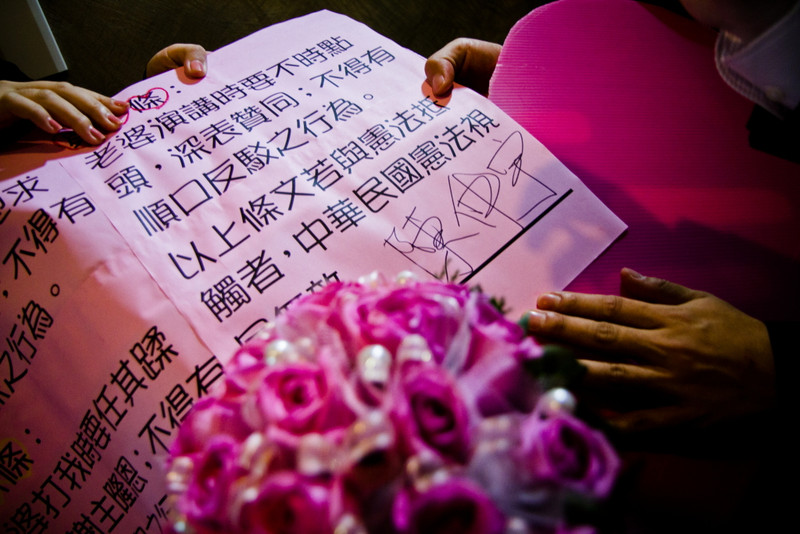 條：
老婆演講時要不時點
頭，深表贊同；不得有
順口反駁之行為。
以上條文若與憲法抵
觸者，中華民國憲法視
求
，不得有
之行為。
條：
婆打我時要任其蹂
謝主隆恩；不得有